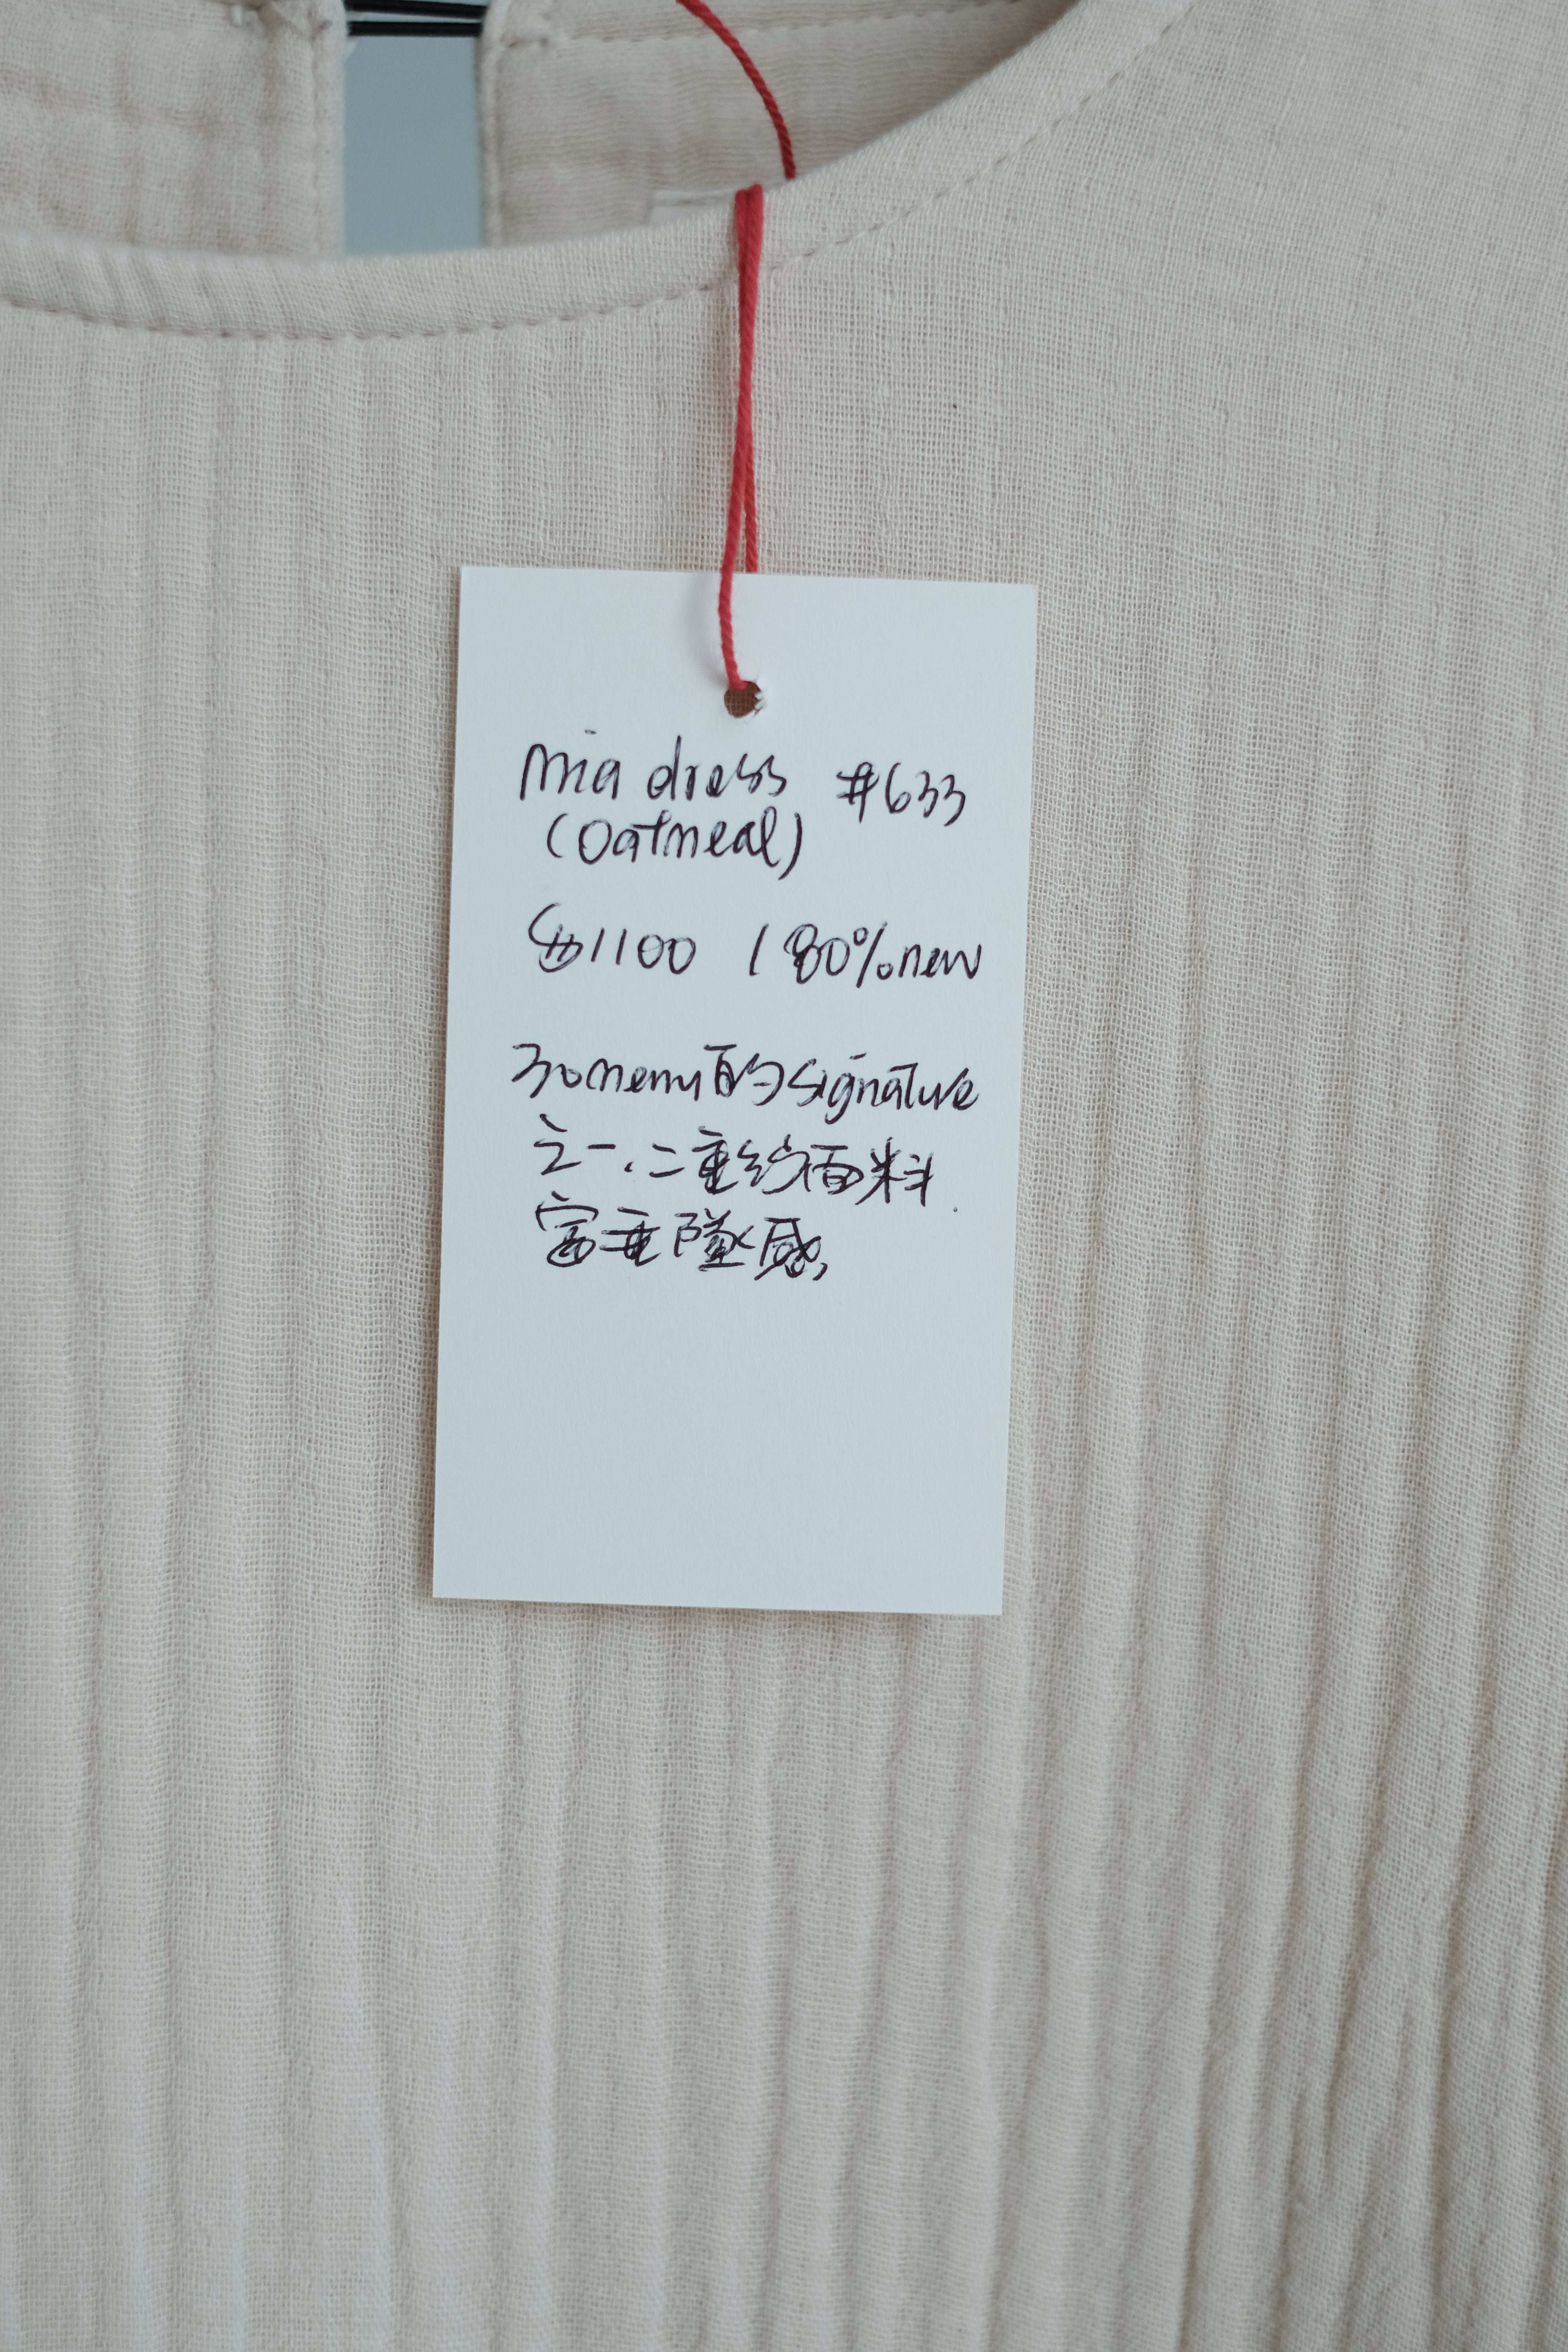 mia dress #633
(Oatmeal)
$1100 / 80% new
的 signature
之一.二重纱面料.
富垂墜感,